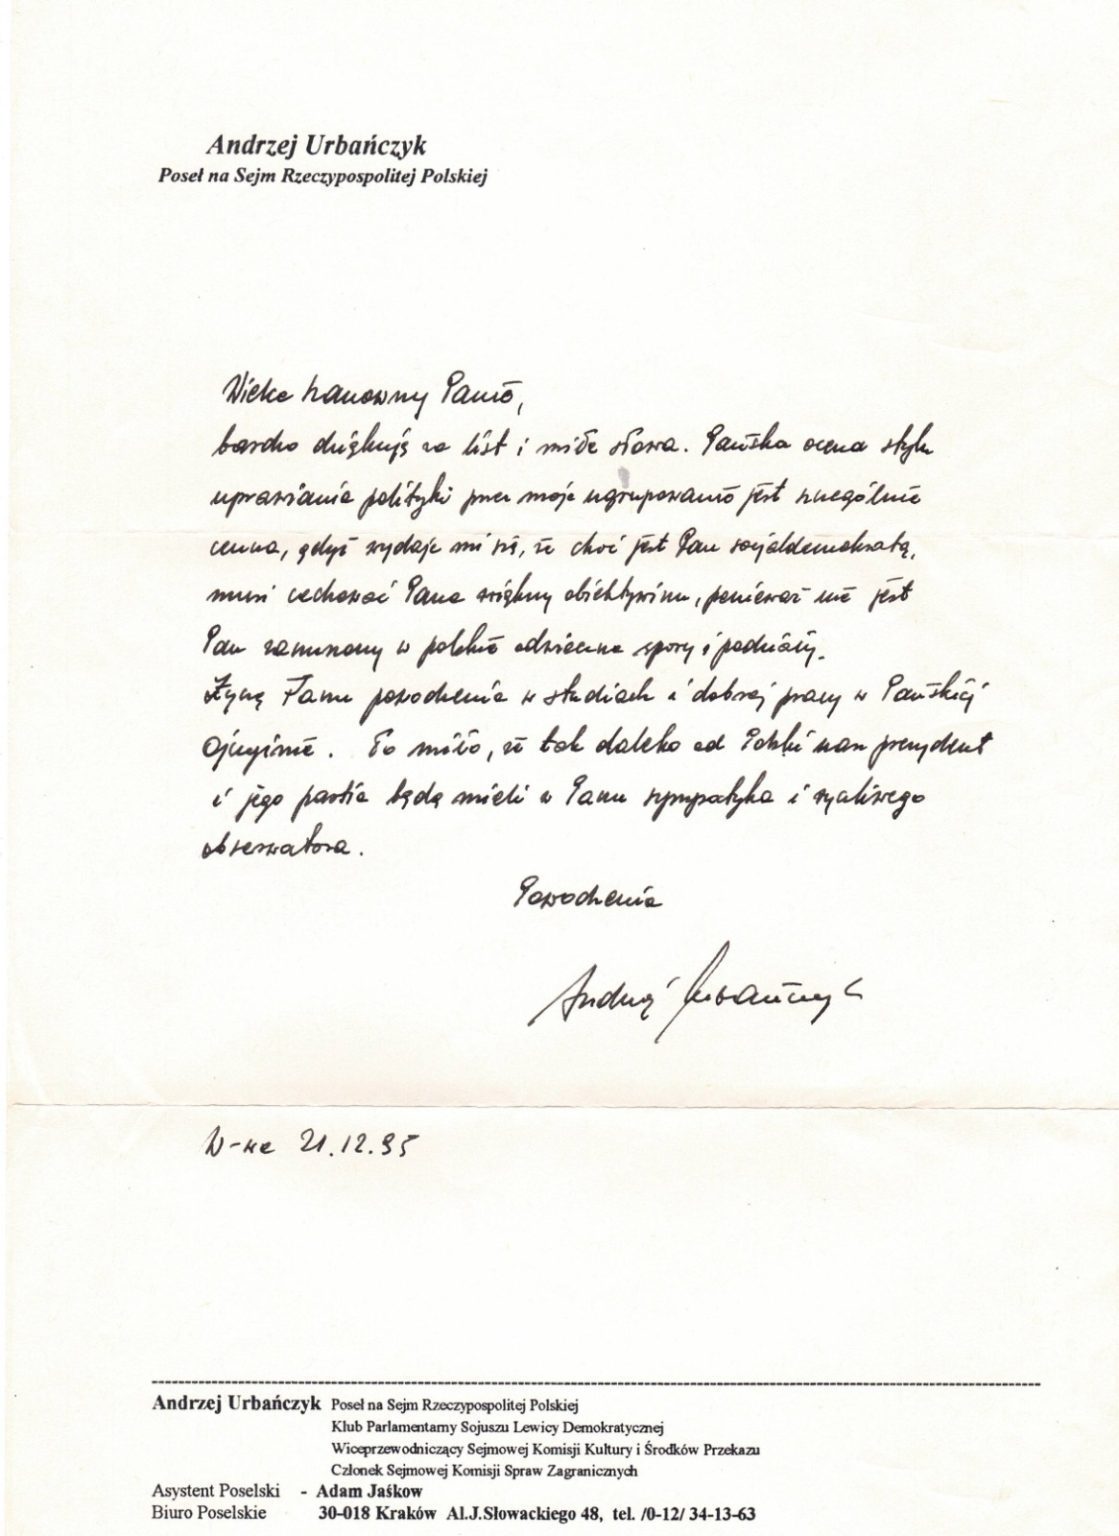 Andrzej Urbańczyk
Poseł na Sejm Rzeczypospolitej Polskiej
Wielce Szanowny Panie,
bardzo dziękuję za list i miłe słowa. Pańska ocena stylu
uprawiania polityki przez moje ugrupowanie jest szczególnie
cenna, gdyż wydaje mi się, że choć jest Pan socjaldemokratą,
musi cechować Pana większy obiektywizm, ponieważ nie jest
Pan zanurzony w polskie odwieczne spory i podziały.
Życzę Panu powodzenia w studiach i dobrej pracy w Pańskiej
Ojczyźnie. To miło, że tak daleko od Polski nasz prezydent
i jego partia będą mieli w Panu sympatyka i życzliwego
obserwatora.
Powodzenia
Andrzej Urbańczyk
W-wa 21.12.95
Andrzej Urbańczyk Poseł na Sejm Rzeczypospolitej Polskiej
Klub Parlamentarny Sojuszu Lewicy Demokratycznej
Wiceprzewodniczący Sejmowej Komisji Kultury i Środków Przekazu
Członek Sejmowej Komisji Spraw Zagranicznych
Asystent Poselski - Adam Jaśkow
Biuro Poselskie 30-018 Kraków Al.J.Słowackiego 48, tel. /0-12/ 34-13-63